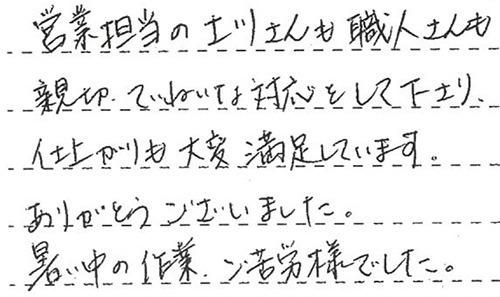 営業担当の土川さんも職人さんも
親切、ていねいな対応をして下さり、
仕上がりも大変満足しています。
ありがとうございました。
暑い中の作業、ご苦労様でした。